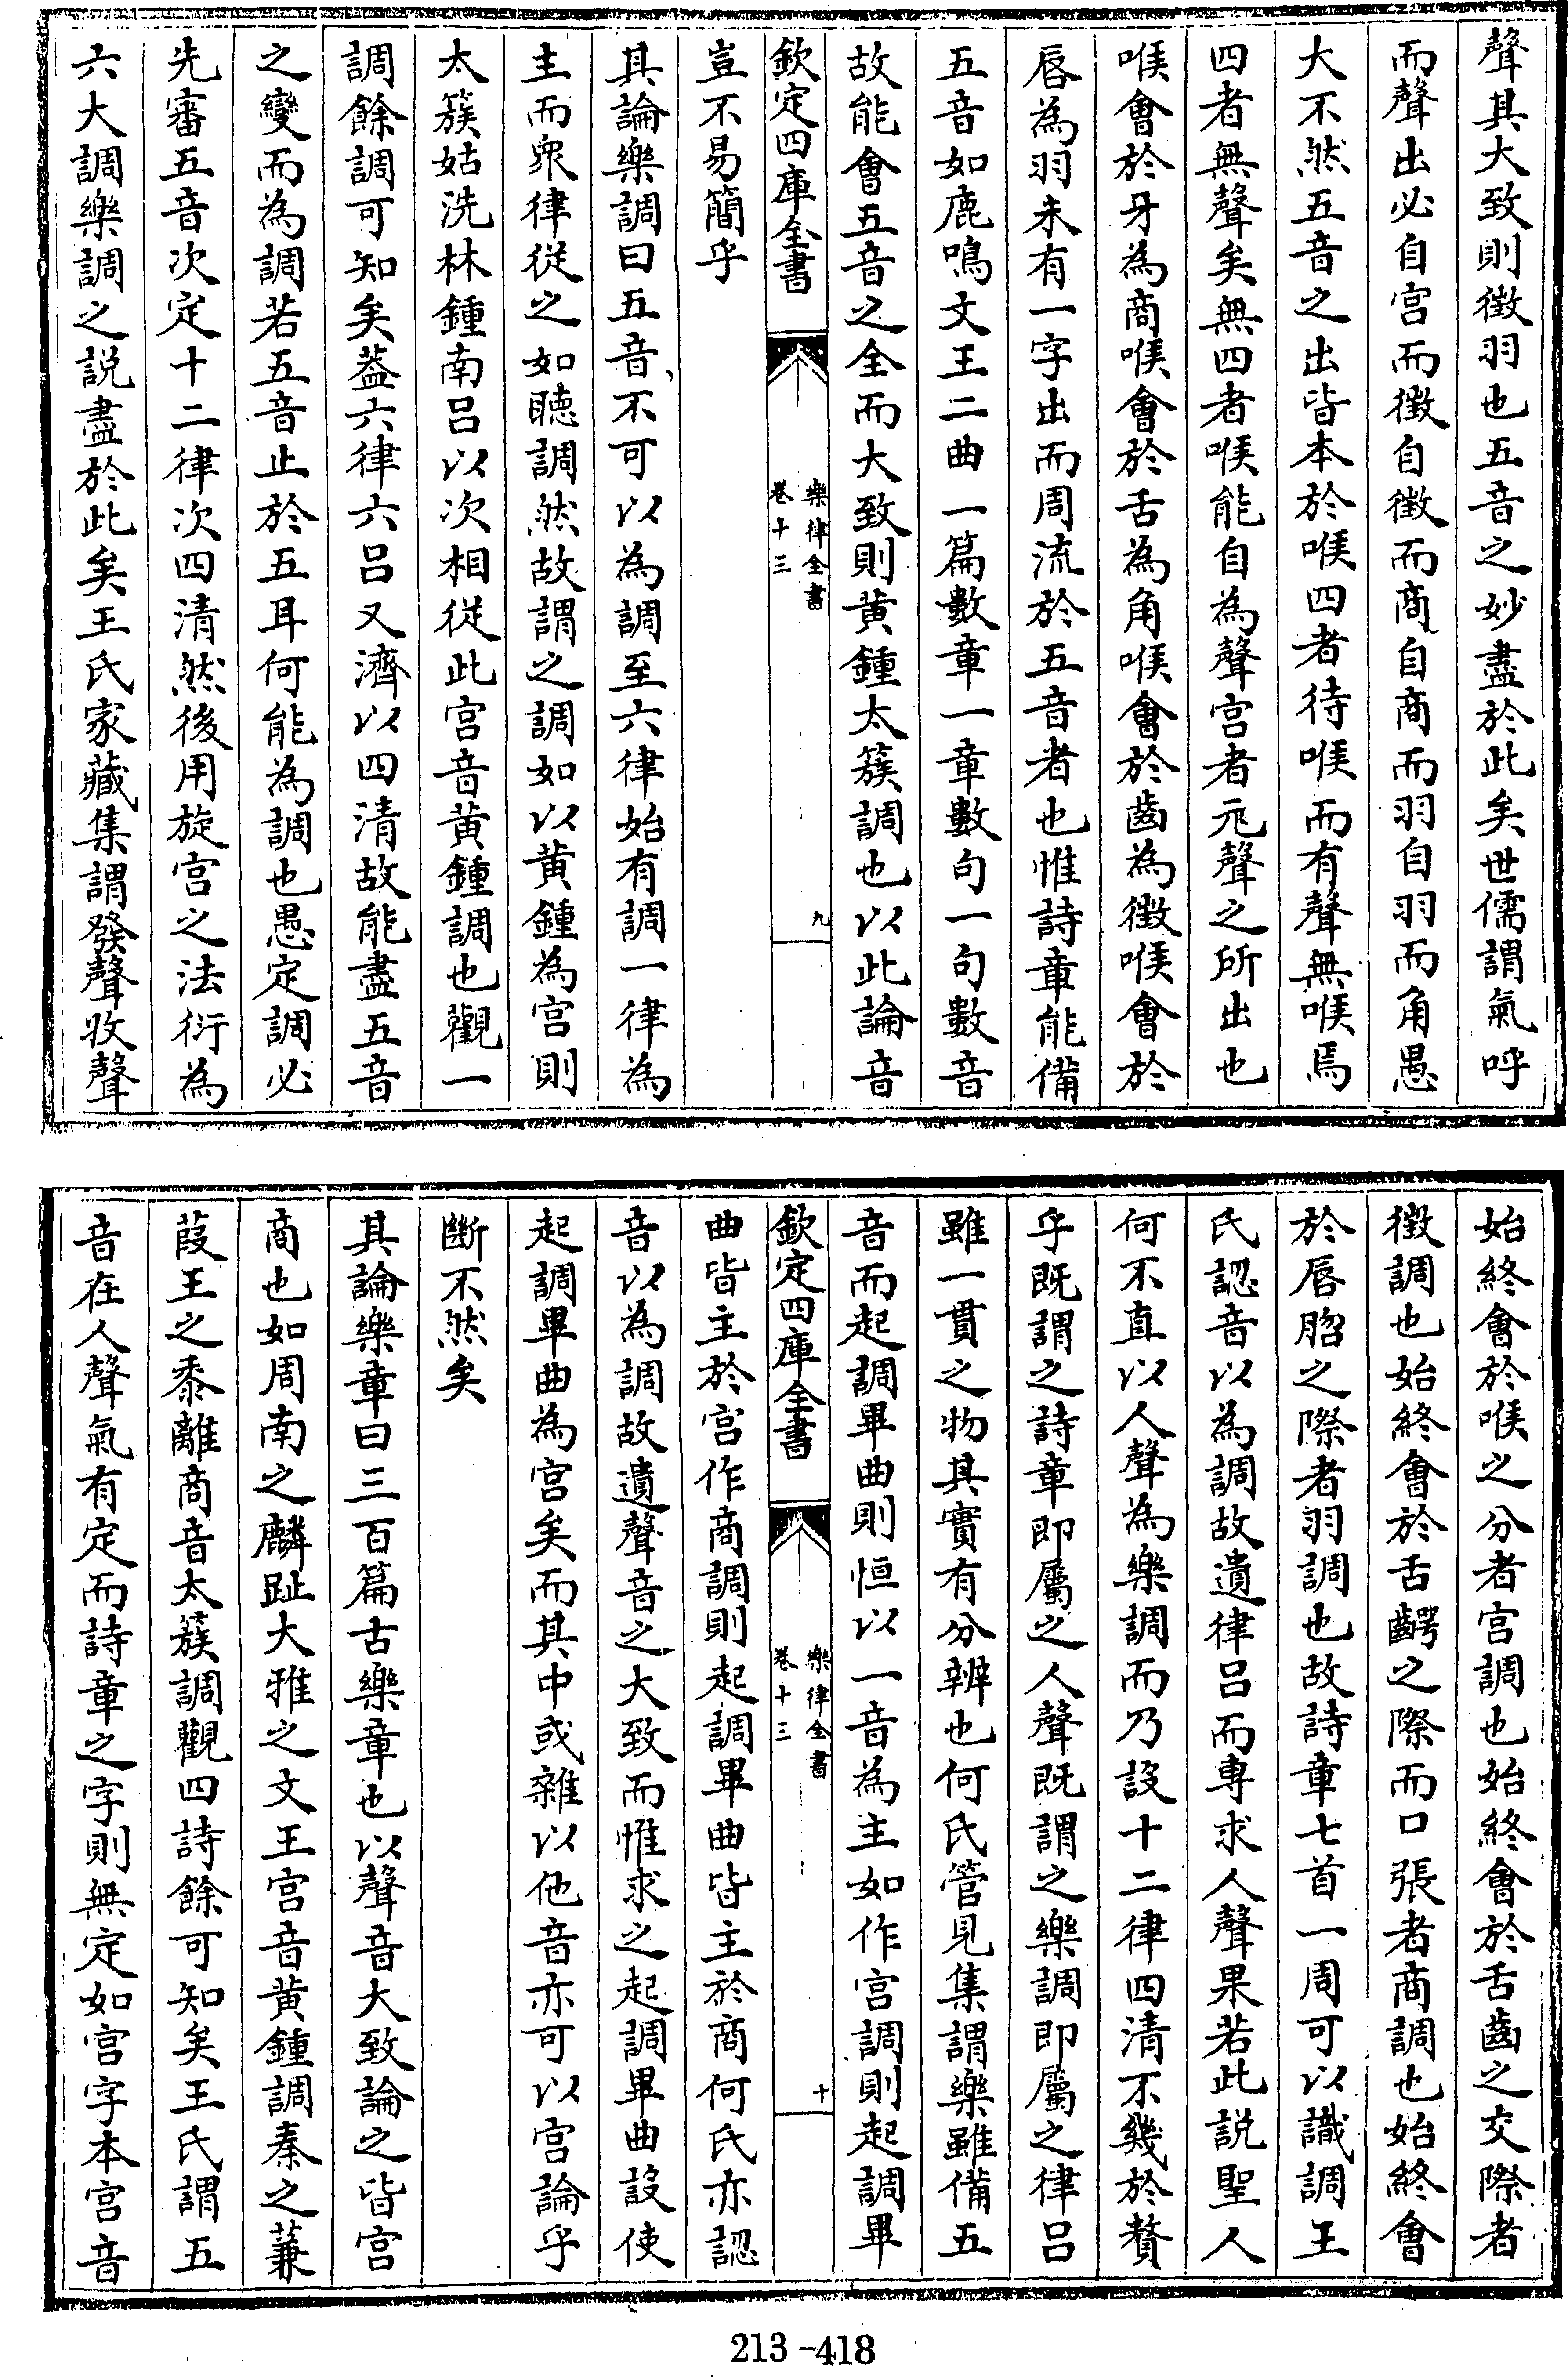 聲其大致則徵羽也五音之妙盡於此矣世儒謂氣呼
而聲出必自宫而徵自徵而商自商而羽自羽而角愚
大不然五音之出皆本於喉四者待喉而有聲無喉焉
四者無聲矣無四者喉能自為聲宫者元聲之所出也
喉會於牙為商喉會於舌為角喉會於齒為徵喉會於
唇為羽未有一字出而周流於五音者也惟詩章能備
五音如鹿鳴文王二曲一篇數章一章數句一句數音
故能會五音之全而大致則黄鍾太簇調也以此論音
欽定四庫全書
樂律全書
卷十三
九
豈不易簡乎
其論樂調曰五音不可以為調至六律始有調一律為
主而衆律從之如聽調然故謂之調如以黄鍾為宫則
太簇姑洗林鍾南吕以次相從此宫音黄鍾調也觀一
調餘調可知矣葢六律六吕又濟以四清故能盡五音
之變而為調若五音止於五耳何能為調也愚定調必
先審五音次定十二律次四清然後用旋宫之法衍為
六大調樂調之説盡於此矣王氏家藏集謂發聲收聲
始終會於喉之分者宫調也始終會於舌齒之交際者
徵調也始終會於舌齶之際而口張者商調也始終會
於唇脗之際者羽調也故詩章七首一周可以識調王
氏認音以為調故遺律吕而專求人聲果若此説聖人
何不直以人聲為樂調而乃設十二律四清不幾於贅
乎既謂之詩章即屬之人聲既謂之樂調即屬之律吕
雖一貫之物其實有分辨也何氏管見集謂樂雖備五
音而起調畢曲則恒以一音為主如作宫調則起調畢
欽定四庫全書
樂律全書
卷十三
十
曲皆主於宫作商調則起調畢曲皆主於商何氏亦認
音以為調故遺聲音之大致而惟求之起調畢曲設使
起調畢曲為宫矣而其中或雜以他音亦可以宫論乎
斷不然矣
其論樂章曰三百篇古樂章也以聲音大致論之皆宫
商也如周南之麟趾大雅之文王宫音黄鍾調秦之蒹
葭王之黍離商音太簇調觀四詩餘可知矣王氏謂五
音在人聲氣有定而詩章之字則無定如宫字本宫音
213-418